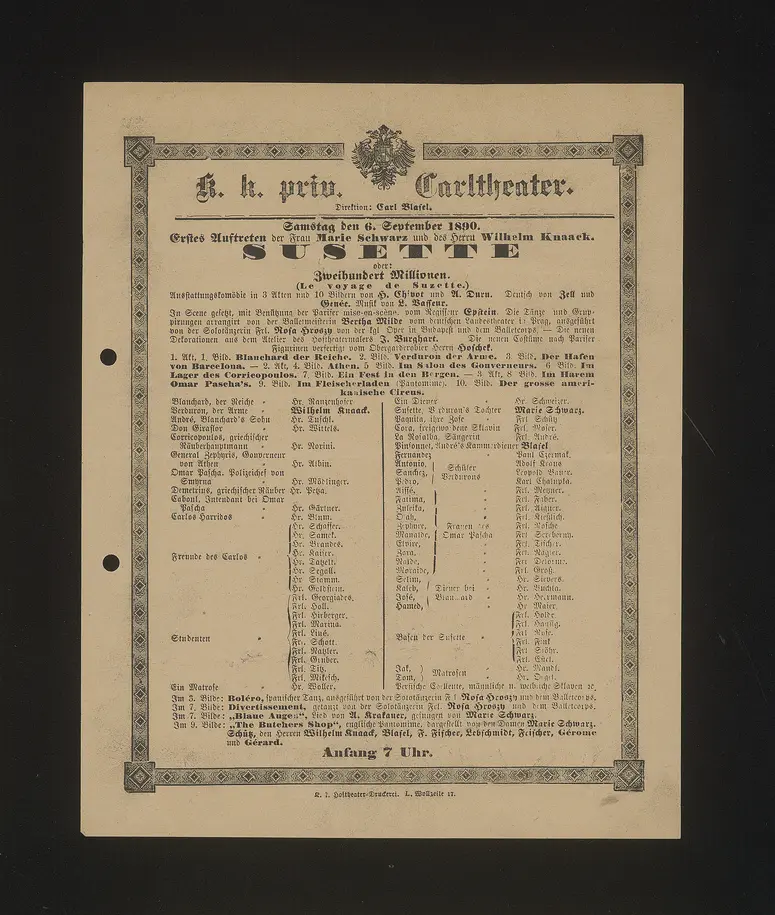 K. k. priv. Carltheater.
Direktion: Carl Blasel.
Samstag den 6. September 1890.
Erstes Auftreten der Frau Marie Schwarz und des Herrn Wilhelm Knaack.
SUSETTE
oder:
Zweihundert Millionen.
(Le voyage de Suzette.)
Ausstattungskomödie in 3 Akten und 10 Bildern von H. Chivot und A. Duru. Deutsch von Zell und
Genée. Musik von L. Vasseur.
In Scene gesetzt, mit Benützung der Pariser mise-en-scène, vom Regisseur Epstein. Die Tänze und Grup-
pirungen arrangirt von der Balletmeisterin Bertha Milde vom deutschen Landestheater in Prag, ausgeführt
von der Solotänzerin Frl. Rosa Hroszy von der kgl. Oper in Budapest und dem Balletcorps. — Die neuen
Dekorationen aus dem Atelier des Hoftheatermalers J. Burghart. Die neuen Costüme nach Pariser
Figurinen verfertigt vom Obergarderobier Herrn Hoschek.
1. Akt, 1. Bild. Blanchard der Reiche. 2. Bild. Verduron der Arme. 3. Bild. Der Hafen
von Barcelona. — 2. Akt, 4. Bild. Athen. 5. Bild. Im Salon des Gouverneurs. 6. Bild. Im
Lager des Corricopoulos. 7. Bild. Ein Fest in den Bergen. — 3. Akt, 8. Bild. Im Harem
Omar Pascha's. 9. Bild. Im Fleischerladen (Pantomime). 10. Bild. Der grosse ameri-
kanische Circus.
Blanchard, der Reiche Hr. Ranzenhofer
Verduron, der Arme Wilhelm Knaack.
André, Blanchard's Sohn Hr. Tuschl.
Don Giraflor Hr. Wittels.
Corricopoulos, griechischer
Räuberhauptmann Hr. Norini.
General Zephyris, Gouverneur
von Athen Hr. Albin.
Omar Pascha, Polizeichef von
Smyrna Hr. Mödlinger.
Demetrius, griechischer Räuber Hr. Petza.
Caboul, Intendant bei Omar
Pascha Hr. Gärtner.
Carlos Harridos Hr. Blum.
Freunde des Carlos
Hr. Schaffer.
Hr. Samek.
Hr. Brandes.
Hr. Kaiser.
Hr. Tatzelt.
Hr. Segall.
Hr. Stamm.
Hr. Goldstein.
Studenten
Frl. Georgiades.
Frl. Holl.
Frl. Hieberger.
Frl. Marina.
Frl. Lius.
Fr. Schott.
Frl. Natzler.
Frl. Gruber.
Frl. Titz.
Frl. Mikesch.
Ein Matrose Hr. Woller.
Ein Diener Hr. Schweizer.
Susette, Verduron's Tochter Marie Schwarz.
Paquita, ihre Zofe Frl. Schütz
Cora, freigewordene Sklavin Frl. Moser.
La Rosalba, Sängerin Frl. André.
Pinsonnet, André's Kammerdiener Blasel
Fernandez Paul Czermak.
Antonio, Adolf Kraus
Sanchez, Leopold Bauer.
Pedro, Karl Chalupka.
Schüler
Verdurons
Aïssé, Frl. Meyner.
Fatima, Frl. Faber.
Zuleika, Frl. Aigner.
Djali, Frl. Kießlich.
Zephyre, Frl. Rosché
Manaïde, Frl. Sereberny.
Elvire, Frl. Tischer.
Zora, Frl. Nagler.
Naïde, Frl. Delorme.
Moraïde, Frl. Groß.
Frauen des
Omar Pascha
Selim, Hr. Sievers.
Kaleb, Hr. Buchta.
José, Hr. Herrmann.
Hamed, Hr. Maier.
Diener bei
Blanchard
Basen der Susette
Frl. Holde
Frl. Hanſig.
Frl. Rose.
Frl. Fink
Frl. Stöhr.
Frl. Edel.
Jak, Hr. Mandl.
Tom, Hr. Orgel.
Matrosen
Persische Edelleute, männliche u. weibliche Sklaven ꝛc.
Im 3. Bilde: Boléro, spanischer Tanz, ausgeführt von der Solotänzerin Frl. Rosa Hroszy und dem Balletcorps.
Im 7. Bilde: Divertissement, getanzt von der Solotänzerin Frl. Rosa Hroszy und dem Balletcorps.
Im 7. Bilde: „Blaue Augen“, Lied von A. Krakauer, gesungen von Marie Schwarz.
Im 9. Bilde: „The Butchers Shop“, englische Pantomime, dargestellt von den Damen Marie Schwarz,
Schütz, den Herren Wilhelm Knaack, Blasel, F. Fischer, Lebschmidt, Feischer, Gérome
und Gérard.
Anfang 7 Uhr.
K. k. Hoftheater-Druckerei. I., Wollzeile 17.